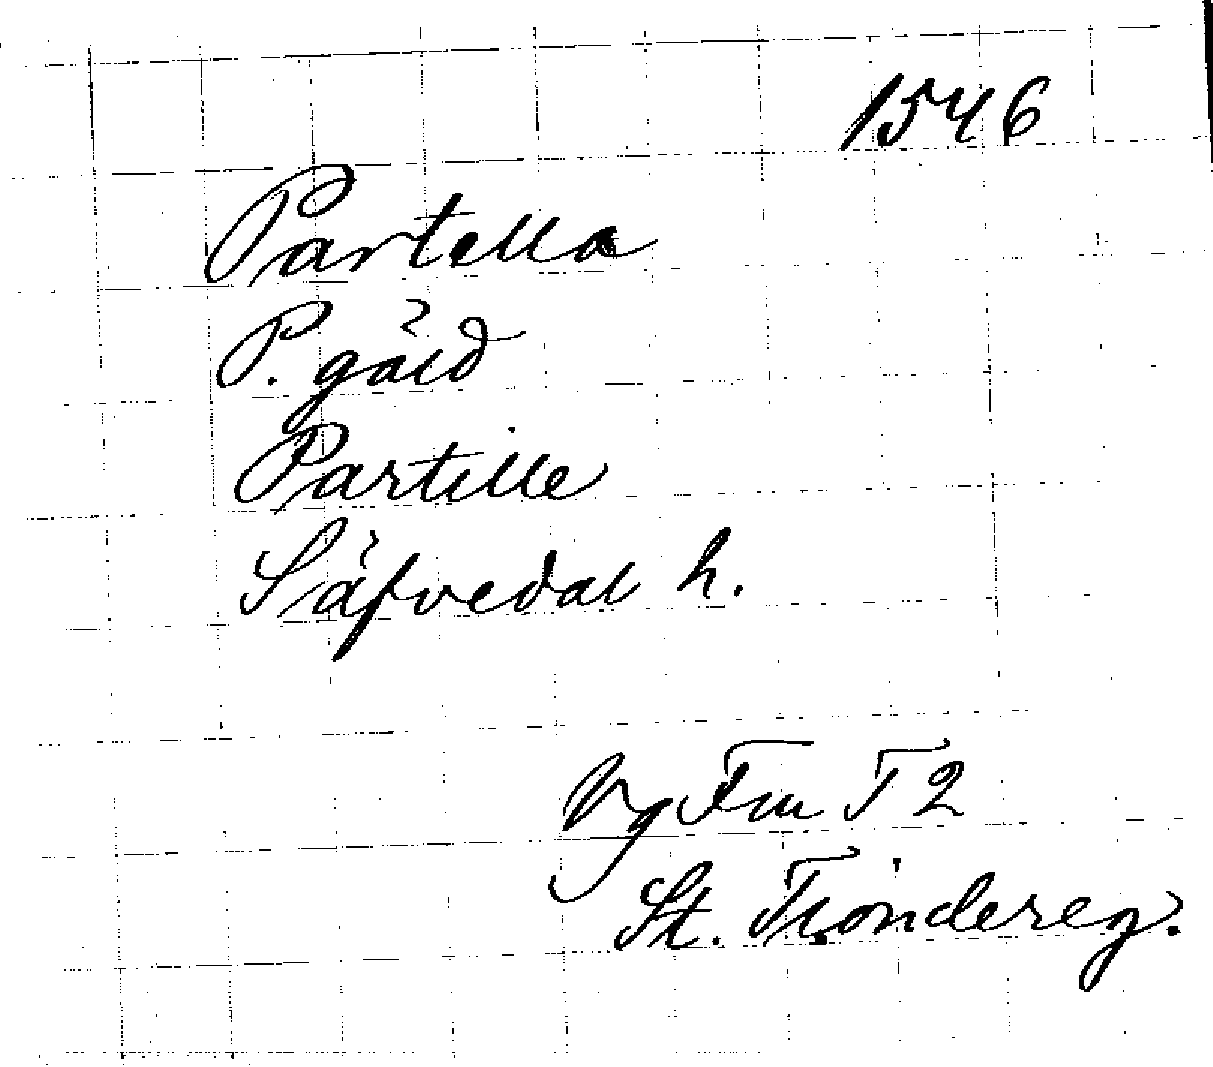 1546
Partella
P. gäld
Partille
Säfvedal h.
Vg Fm T 2
St. Tiondereg.